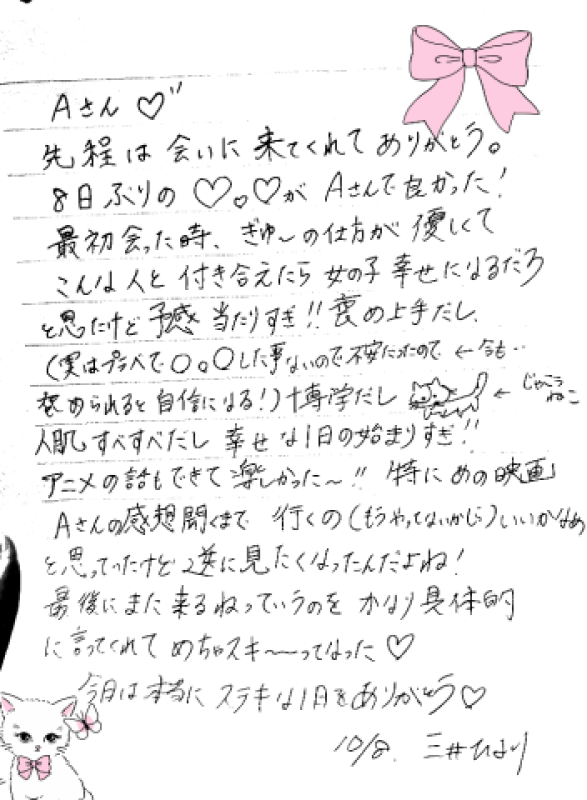 Aさん♡"
先程は会いに来てくれてありがとう。
8日ぶりの♡。♡がAさんで良かった!
最初会った時、ぎゅ〜の仕方が優しくて
こんな人と付き合えたら女の子幸せになるだろ
と思たけど予感当たりすぎ!!褒め上手だし、
(実はプラベで〇。〇した事ないので不安だったので ←今も‥
褒められると自信になる!)博学だし ← じゃこうねこ
人肌すべすべだし 幸せな1日の始まりすぎ!!
アニメの話もできて楽しかった〜!! 特にあの映画
Aさんの感想聞くまで 行くの(もうやってないかしら)いいかなぁ
と思っていたけど逆に見たくなったんだよね!
最後にまた来るねっていうのを かなり具体的
に言ってくれて めちゃスキ〜〜ってなった♡
今日は本当に ステキな1日をありがとう♡
10/8. 三井ひより